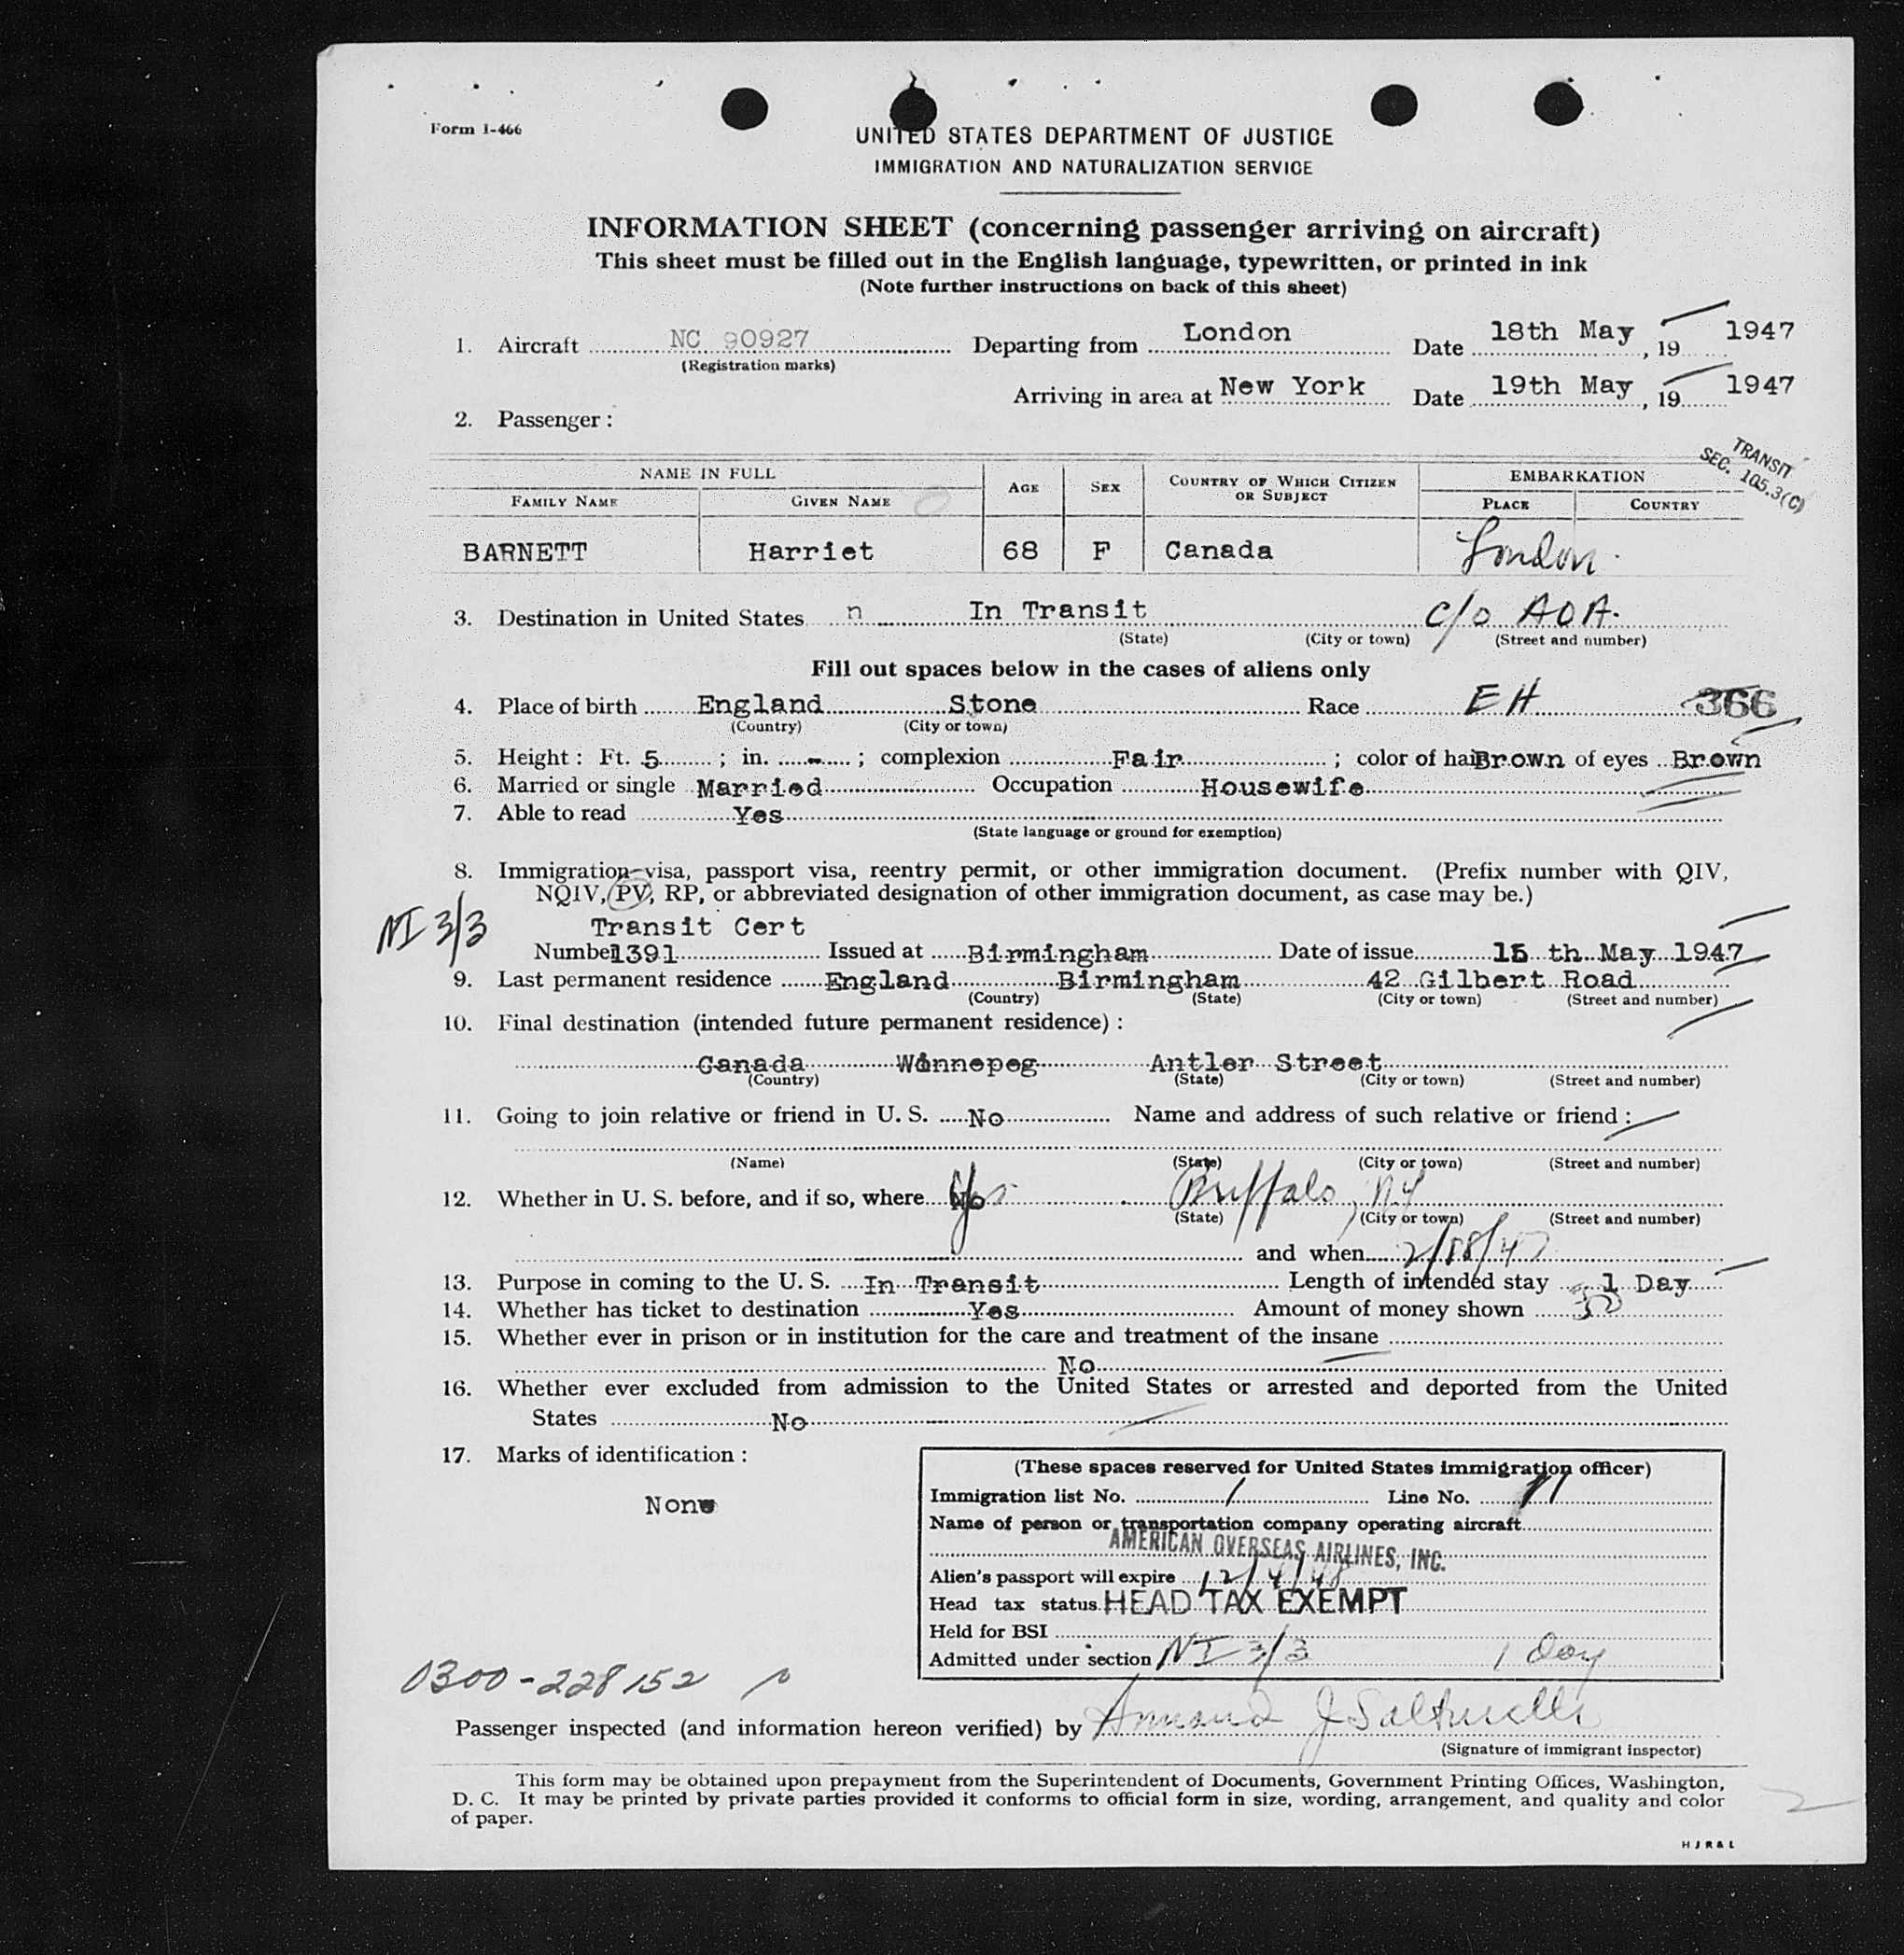 Form I-466
UNITED STATES DEPARTMENT OF JUSTICE
IMMIGRATION AND NATURALIZATION SERVICE
INFORMATION SHEET (concerning passenger arriving on aircraft)
This sheet must be filled out in the English language, typewritten, or printed in ink
(Note further instructions on back of this sheet)
1. Aircraft NC 90927 Departing from London Date 18th May , 19 1947
(Registration marks)
Arriving in area at New York Date 19th May , 19 1947
2. Passenger :
TRANSIT
SEC. 105.3(C)
NAME IN FULL AGE SEX COUNTRY OF WHICH CITIZEN OR SUBJECT EMBARKATION
FAMILY NAME GIVEN NAME PLACE COUNTRY
BARNETT Harriet 68 F Canada London
3. Destination in United States n In Transit c/o AOA.
(State) (City or town) (Street and number)
Fill out spaces below in the cases of aliens only
4. Place of birth England Stone Race EH 366
(Country) (City or town)
5. Height : Ft. 5 ; in. - ; complexion Fair ; color of hair Brown of eyes Brown
6. Married or single Married Occupation Housewife
7. Able to read Yes
(State language or ground for exemption)
8. Immigration visa, passport visa, reentry permit, or other immigration document. (Prefix number with QIV,
NQIV, PV, RP, or abbreviated designation of other immigration document, as case may be.)
NI 3/3 Transit Cert
Number 1391 Issued at Birmingham Date of issue 15 th May 1947
9. Last permanent residence England Birmingham 42 Gilbert Road
(Country) (State) (City or town) (Street and number)
10. Final destination (intended future permanent residence) :
Canada Winnepeg Antler Street
(Country) (State) (City or town) (Street and number)
11. Going to join relative or friend in U. S. No Name and address of such relative or friend :
(Name) (State) (City or town) (Street and number)
12. Whether in U. S. before, and if so, where No Yes Buffalo, NY
(State) (City or town) (Street and number)
and when
13. Purpose in coming to the U. S. In Transit Length of intended stay 1 Day
14. Whether has ticket to destination Yes Amount of money shown
15. Whether ever in prison or in institution for the care and treatment of the insane
No
16. Whether ever excluded from admission to the United States or arrested and deported from the United
States No
17. Marks of identification :
None
(These spaces reserved for United States immigration officer)
Immigration list No. 1 Line No. 11
Name of person or transportation company operating aircraft
AMERICAN OVERSEAS AIRLINES, INC.
Alien's passport will expire 12/4/48
Head tax status HEAD TAX EXEMPT
Held for BSI
Admitted under section NI 3/3 1 Day
0300-228152
Passenger inspected (and information hereon verified) by
(Signature of immigrant inspector)
This form may be obtained upon prepayment from the Superintendent of Documents, Government Printing Offices, Washington,
D. C. It may be printed by private parties provided it conforms to official form in size, wording, arrangement, and quality and color
of paper.
HJR&L